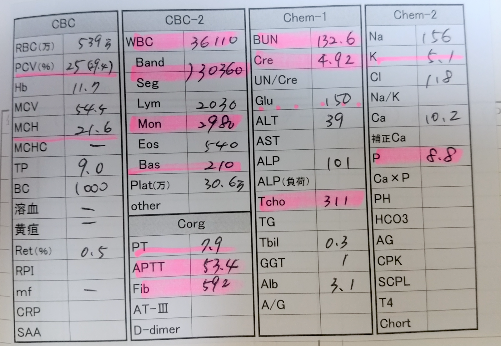 CBC
RBC(万) 539万
PCV(%)
Hb 11.7
MCV 54.4
MCH 21.6
MCHC —
TP 9.0
BC 1000
溶血 —
黄疸 —
Ret(%) 0.5
RPI
mf —
CRP
SAA
CBC-2
WBC 36110
Band
Seg 30360
Lym 2030
Mon 2980
Eos 540
Bas 210
Plat(万) 30.6万
other
Corg
PT 7.9
APTT 53.4
Fib 592
AT-III
D-dimer
Chem-1
BUN 132.6
Cre 4.92
UN/Cre
Glu 150
ALT 39
AST
ALP 101
ALP(負荷)
Tcho 311
TG
Tbil 0.3
GGT 1
Alb 3.1
A/G
Chem-2
Na 156
K 5.1
Cl 118
Na/K
Ca 10.2
補正Ca
P 8.8
Ca×P
PH
HCO3
AG
CPK
SCPL
T4
Chort